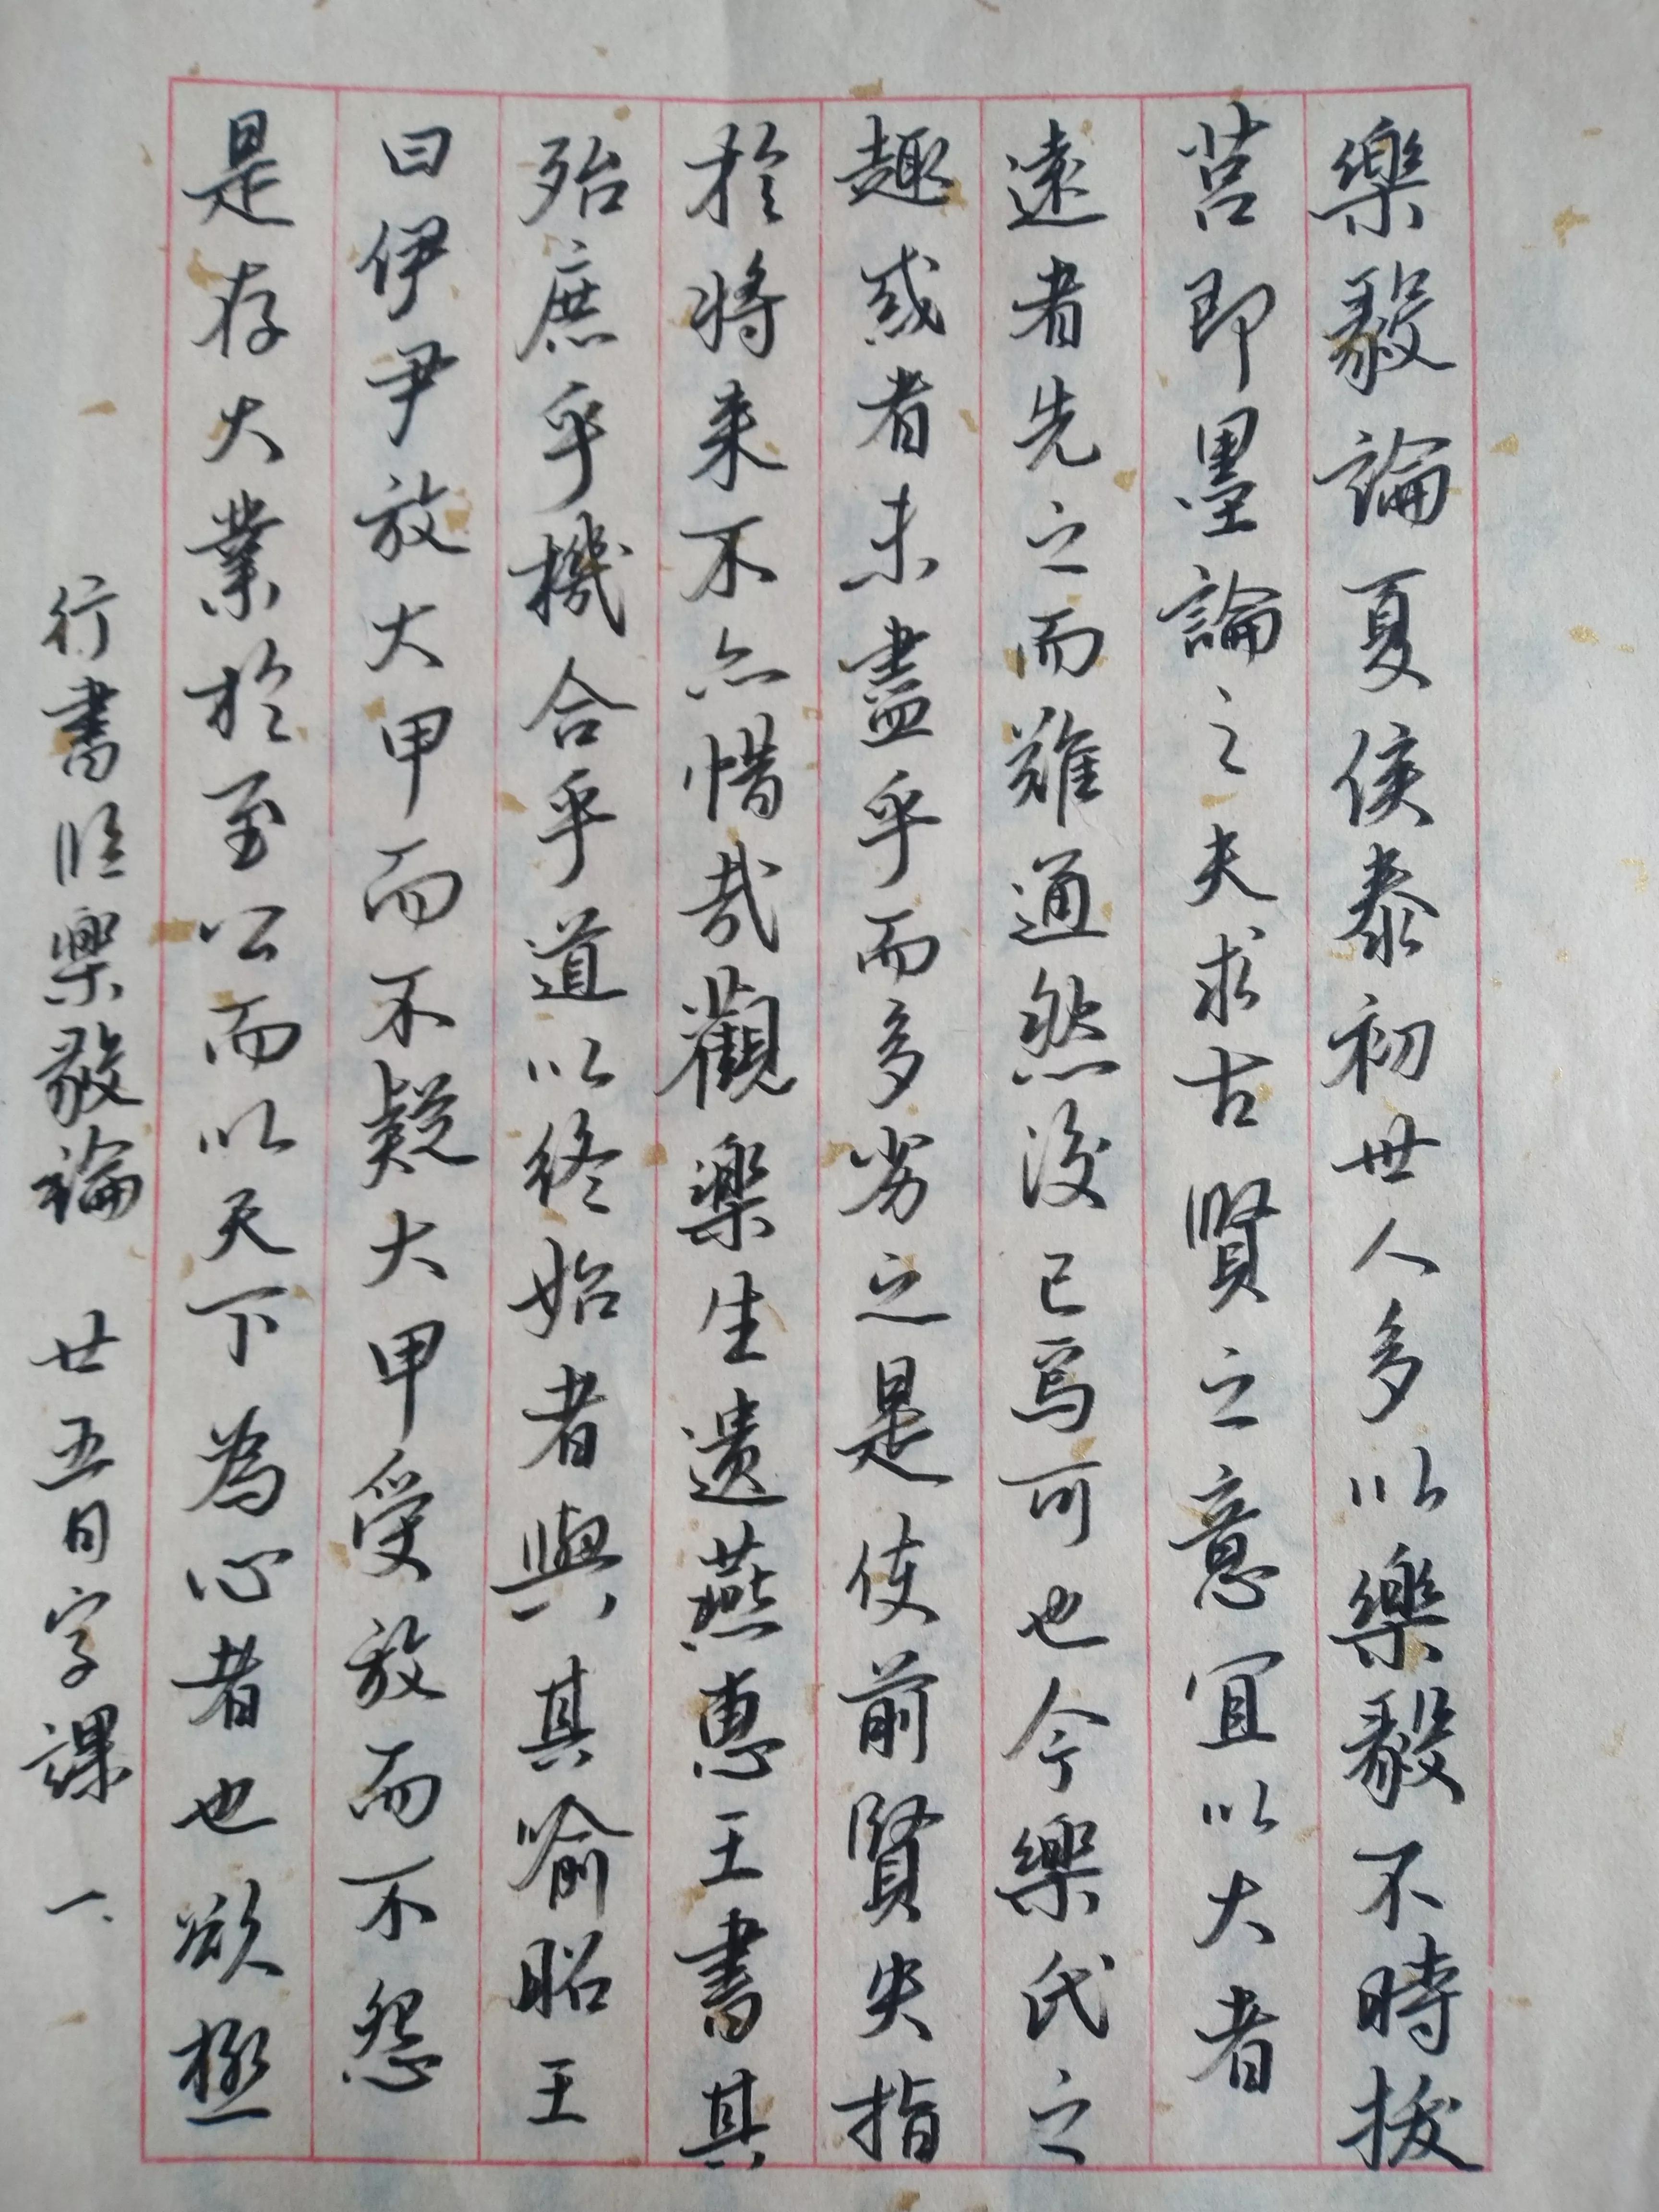 樂毅論夏侯泰初世人多以樂毅不時拔
莒即墨論之夫求古賢之意宜以大者
遠者先之而難通然後已焉可也今樂氏之
趣或者未盡乎而多劣之是使前賢失指
於將来不亦惜哉觀樂生遺燕惠王書其
殆庶乎機合乎道以終始者與其喻昭王
曰伊尹放大甲而不疑大甲受放而不怨
是存大業於至公而以天下為心者也欲極
行書臨樂毅論 廿五日字課 一